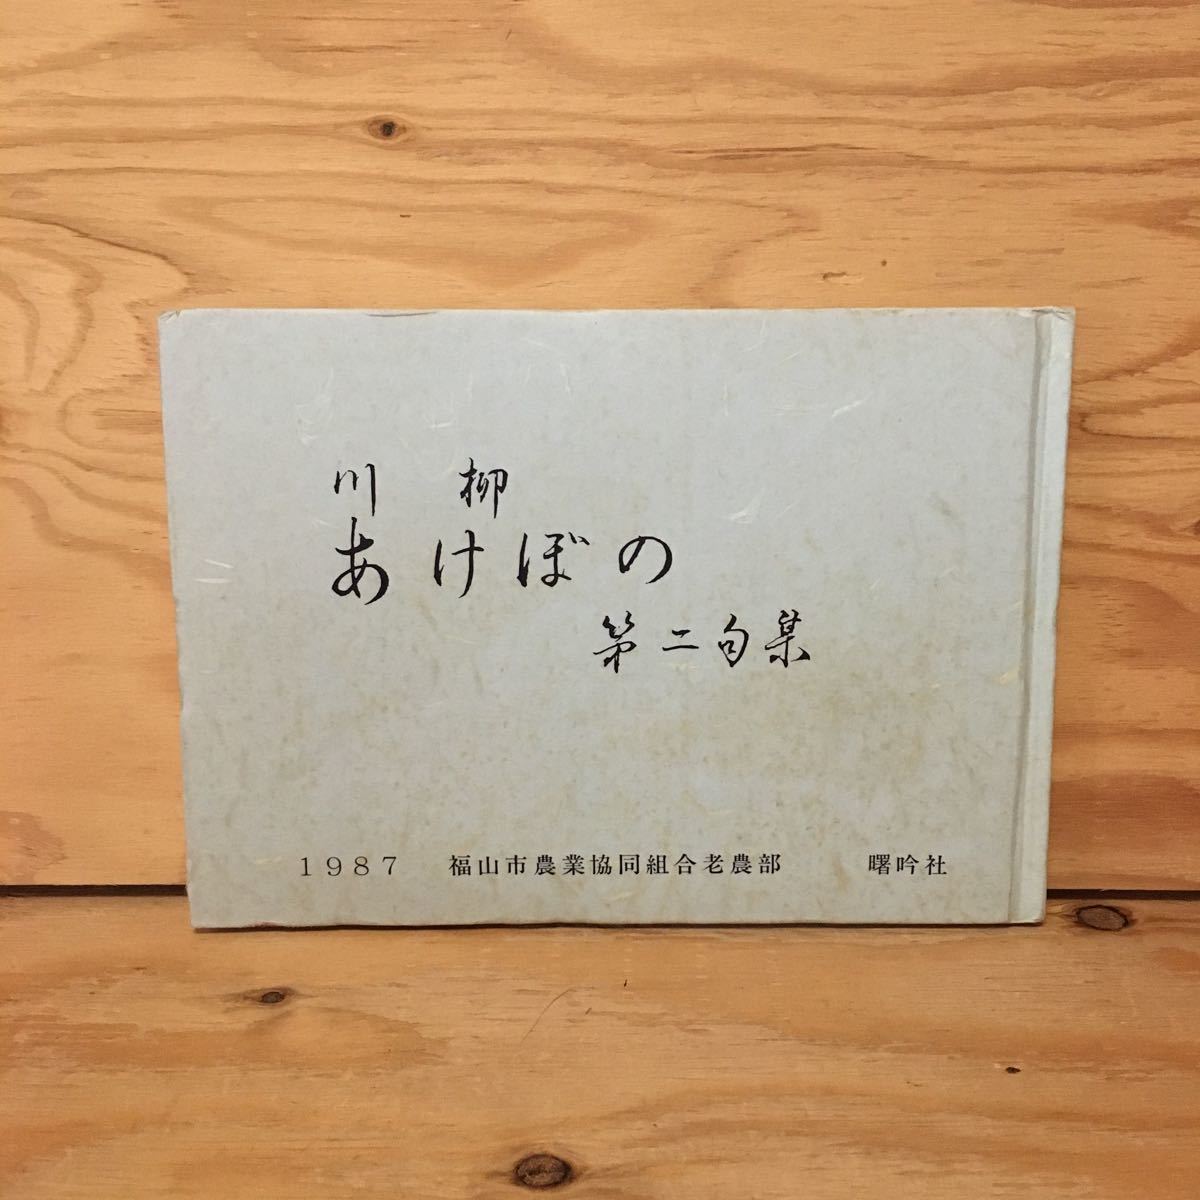 川柳
あけぼの
第二句集
1987 福山市農業協同組合老農部 曙吟社